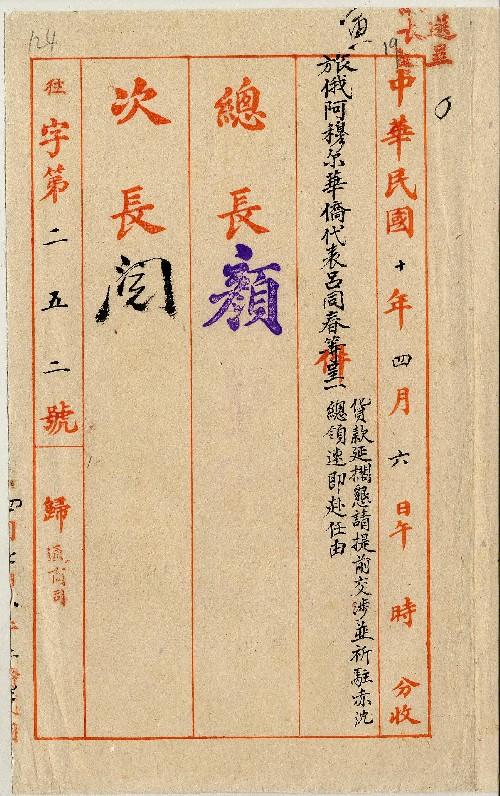 選呈
長
19
124
中華民國十年四月六日午 時 分收
旅俄阿穆尔華僑代表呂同春等呈一
貨款延擱懇請提前交涉並祈駐赤沈
總領速即赴任由
總長
顏
次長
閱
往字第二五二號
歸通商司